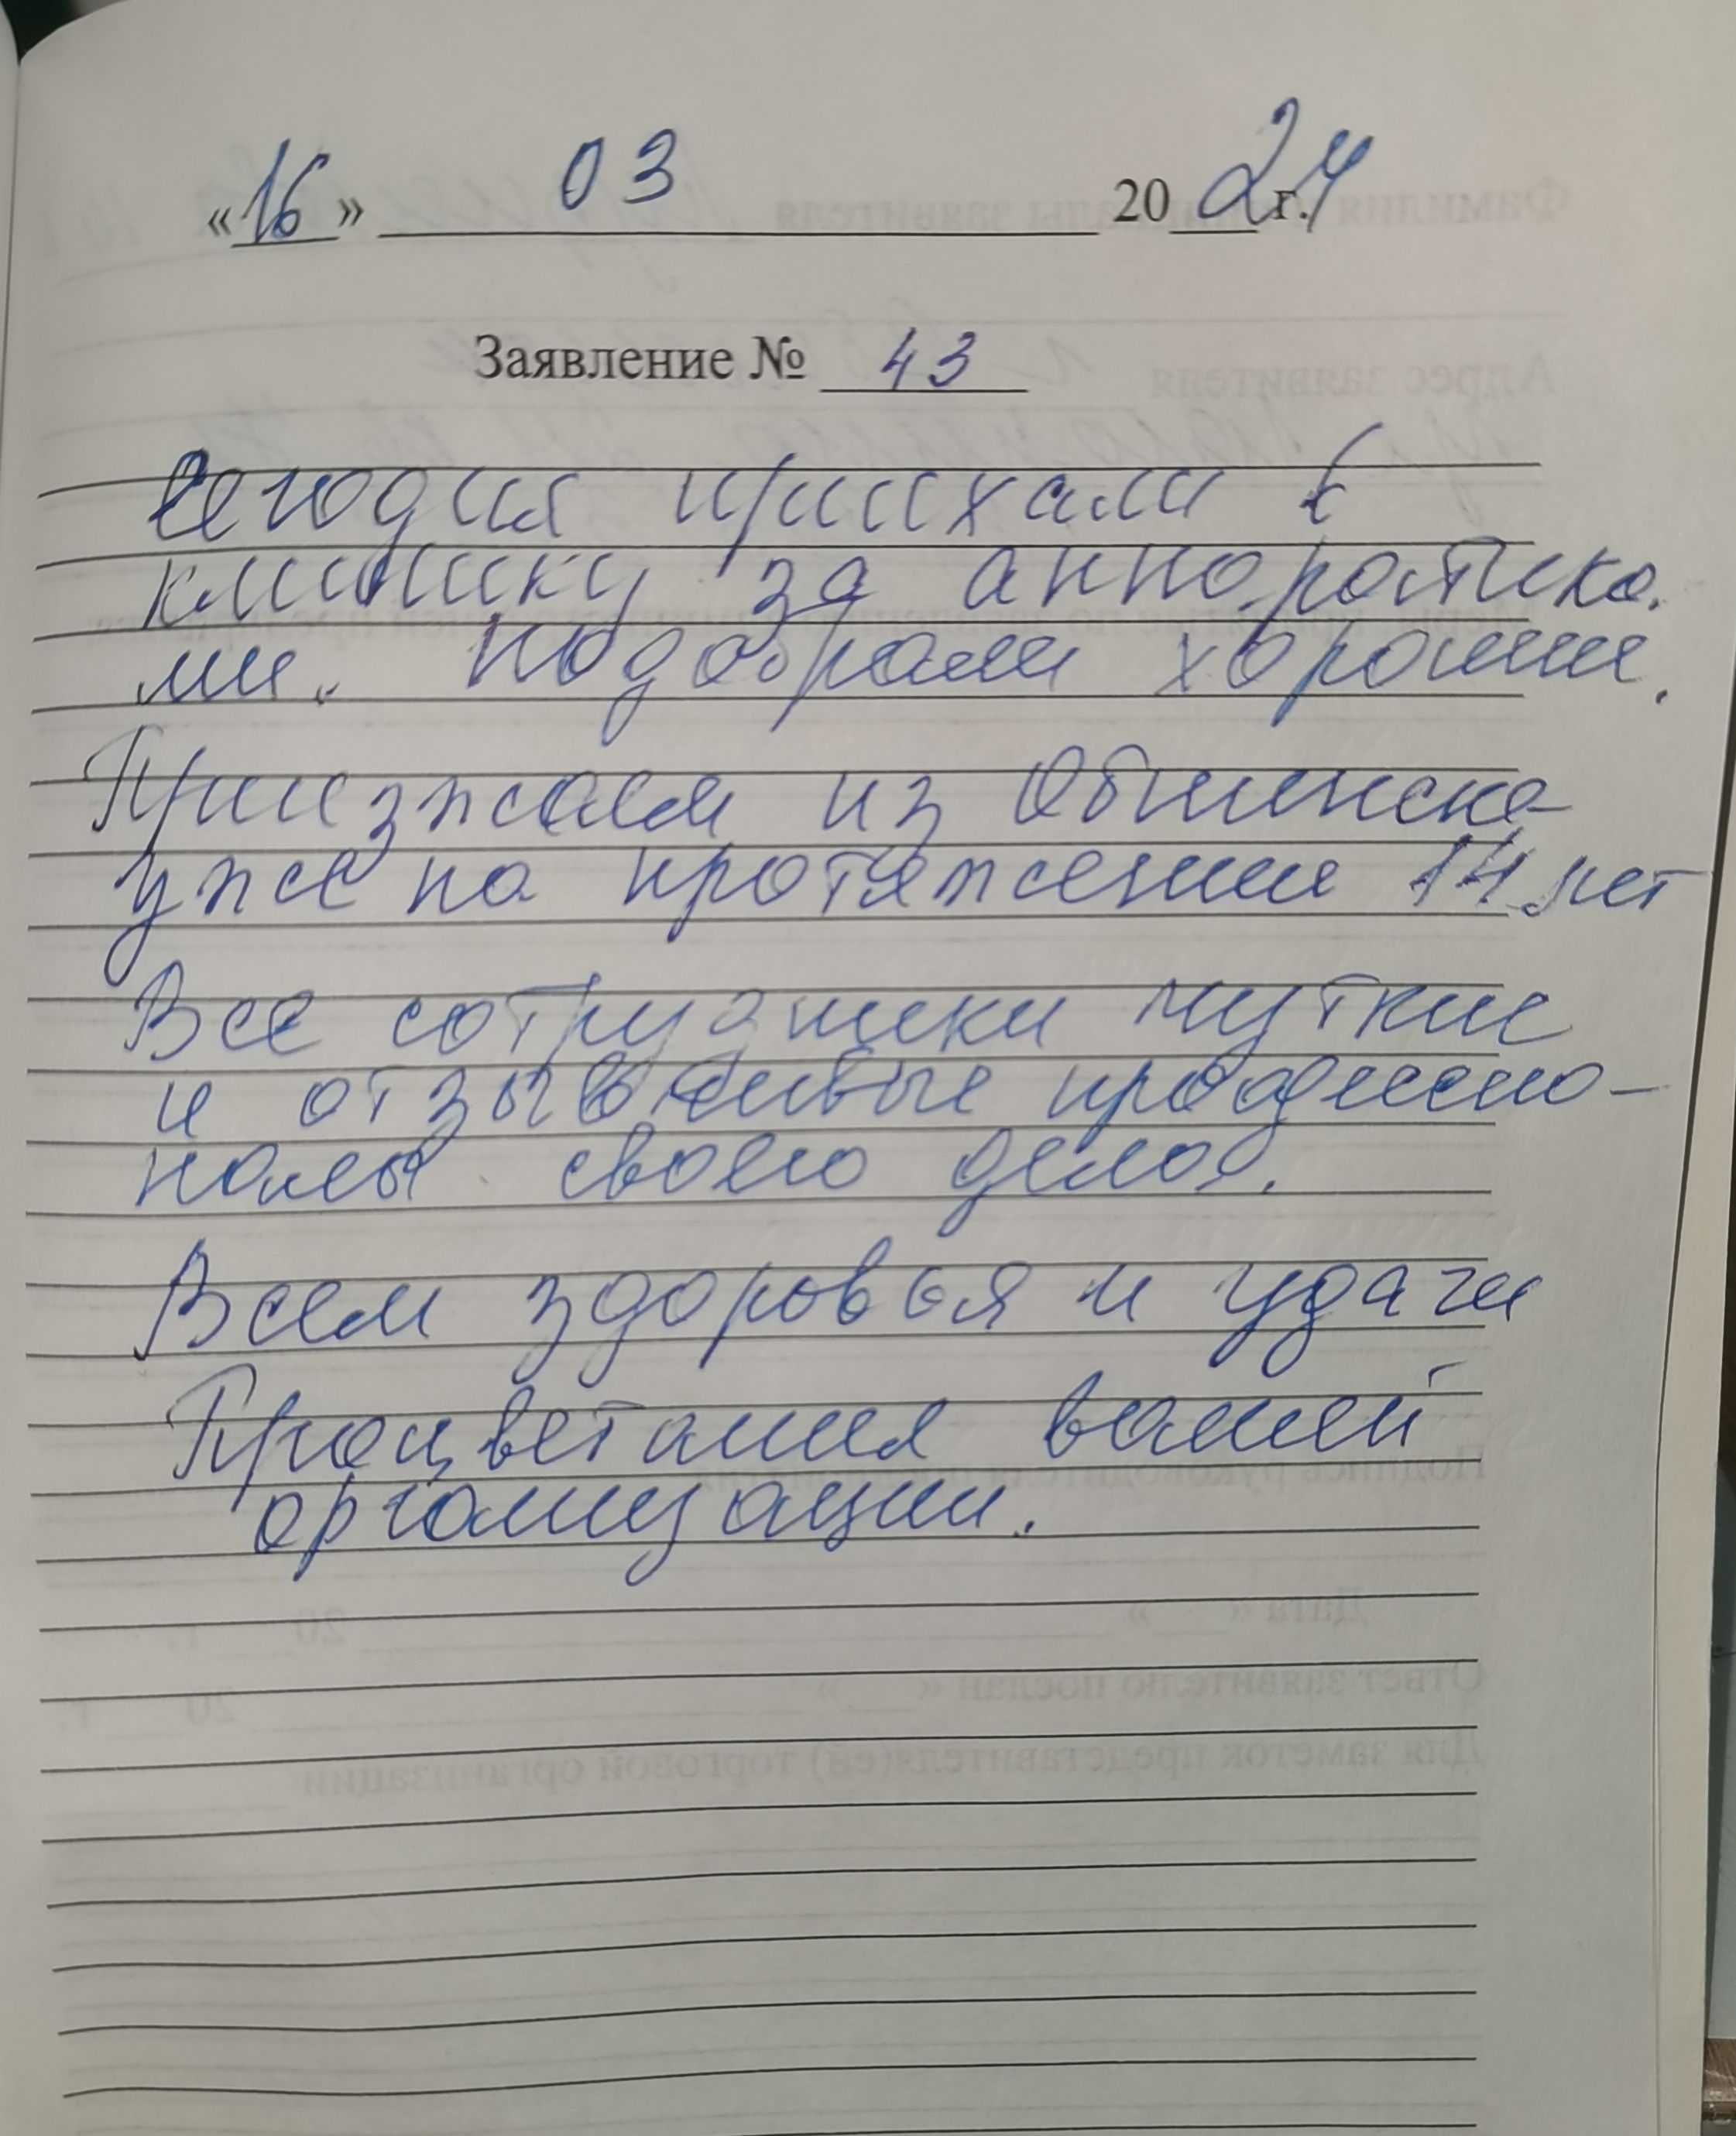 «16» 03 2024 г.
Заявление № 43
Сегодня приехали в
клинику за аппоратика.
ми. Подобрали хорошие.
Приезжаем из Обнинска
уже на протяжении 14 лет
Все сотрудники чуткие
и отзывчивые професио-
налы своего дела.
Всем здоровья и удачи
Процветания вашей
организации.